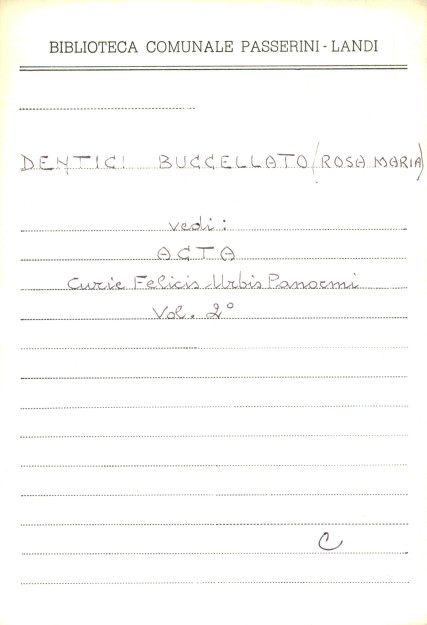 BIBLIOTECA COMUNALE PASSERINI - LANDI
DENTICI BUCCELLATO (ROSA MARIA)
vedi:
ACTA
Curie Felicis Urbis Panormi
Vol. 2°
C